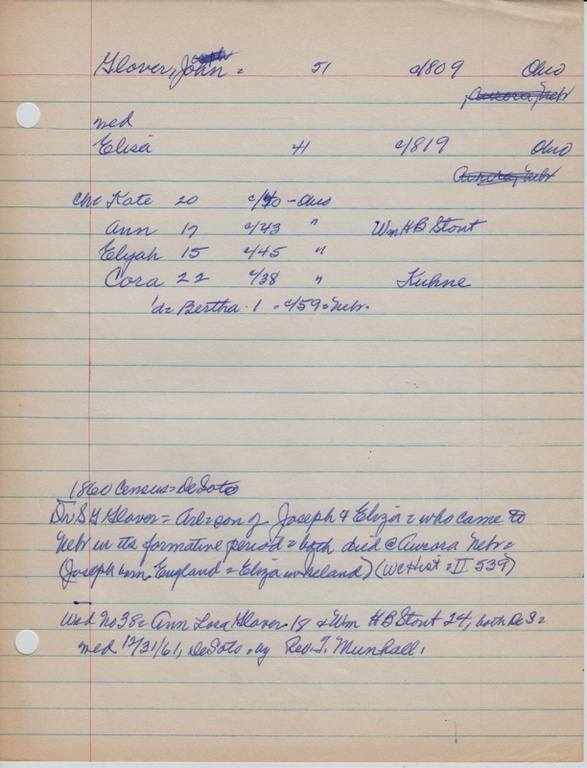 Glover, John = 51 c/809 Ohio
Aurora, Nebr
wed
Eliza 41 c/819 Ohio
Aurora, Nebr
Ch= Kate 20 c/40 - Ohio
Ann 17 c/43 " Wm H B Stout
Elijah 15 c/45 "
Cora 22 c/38 " Kuhne
'd= Bertha - 1 - c/59 = Nebr.
1860 Census = DeSoto
Dr S G Glover = Arl = son of Joseph & Eliza = who came to
Nebr in its formative period = both died @ Aurora Nebr =
(Joseph born England = Eliza in Ireland) (WC Hist = II 539)
Wed No 38 = Ann Lora Glover 18 & Wm H B Stout 24, both DeS =
wed 12/31/61, DeSoto, by Rev. T. Munhall.